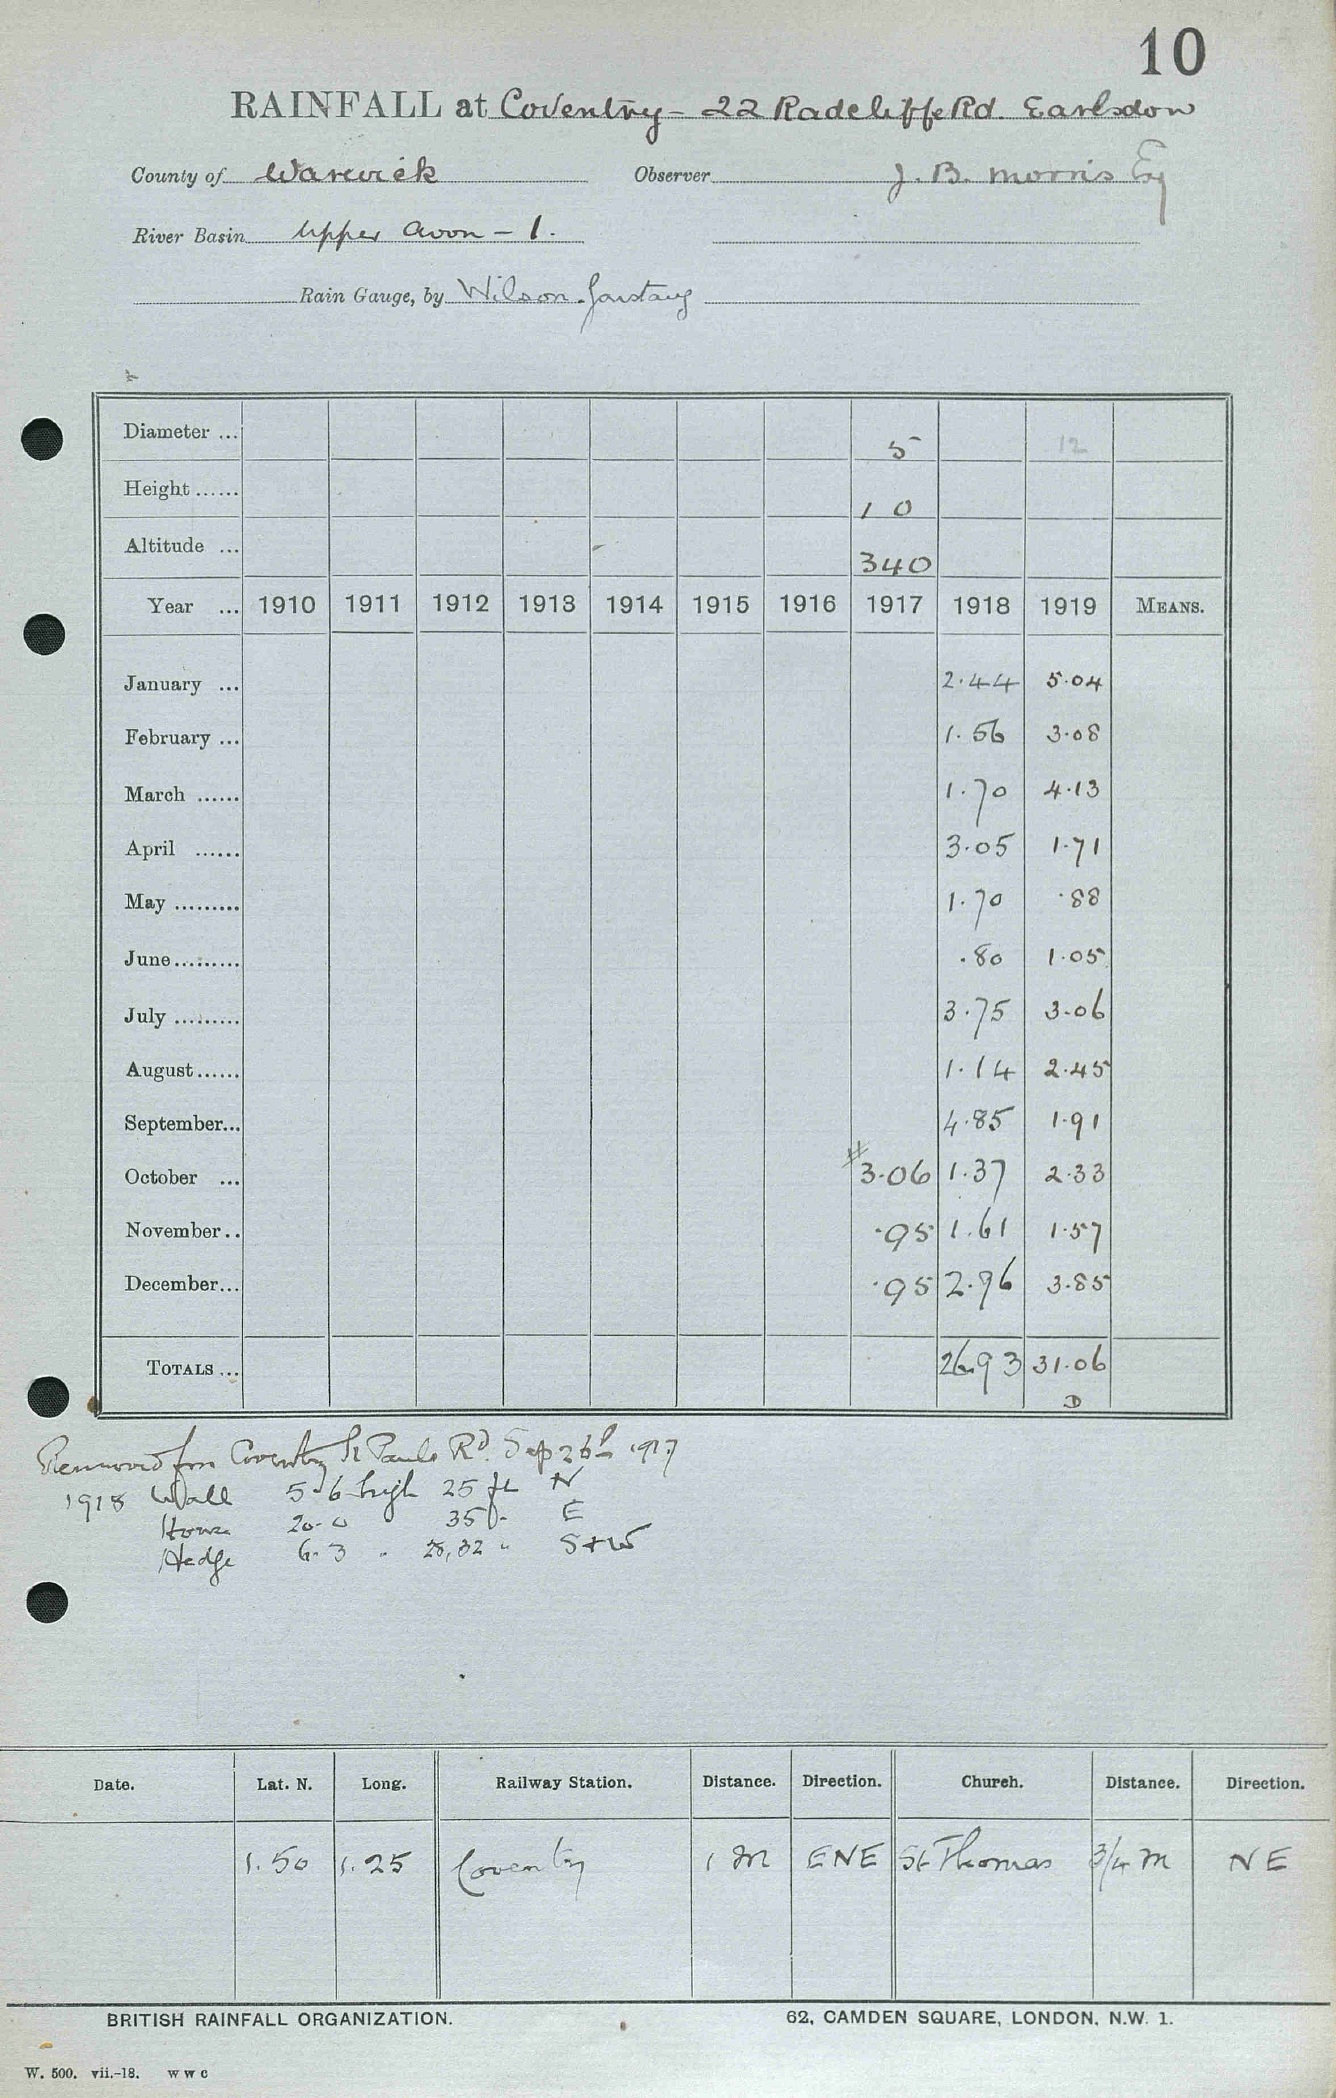 10
RAINFALL at Coventry - 22 Radcliffe Rd. Earlsdon
County of Warwick Observer J. B. Morris Esq
River Basin Upper Avon - 1.
Rain Gauge, by Wilson
Diameter ... 5 12
Height ...... 1 0
Altitude ... 340
Year ... 1910 1911 1912 1913 1914 1915 1916 1917 1918 1919 MEANS.
January ... 2.44 5.04
February ... 1.56 3.08
March ...... 1.70 4.13
April ...... 3.05 1.71
May ......... 1.70 .88
June ......... .80 1.05
July ......... 3.75 3.06
August ...... 1.14 2.45
September... 4.85 1.91
October ... #3.06 1.37 2.33
November .. .95 1.61 1.57
December... .95 2.96 3.85
TOTALS ... 26.93 31.06
D
Removed from Coventry St Pauls Rd. Sep 26th 1917
1918 Wall 5-6 high 25 ft N
House 20-0 35 E
Hedge 6-3 " 28, 32 " S + W
Date. Lat. N. Long. Railway Station. Distance. Direction. Church. Distance. Direction.
1.50 1.25 Coventry 1 M ENE St Thomas 3/4 M NE
BRITISH RAINFALL ORGANIZATION. 62, CAMDEN SQUARE, LONDON, N.W. 1.
W. 500. vii.-18. w w c